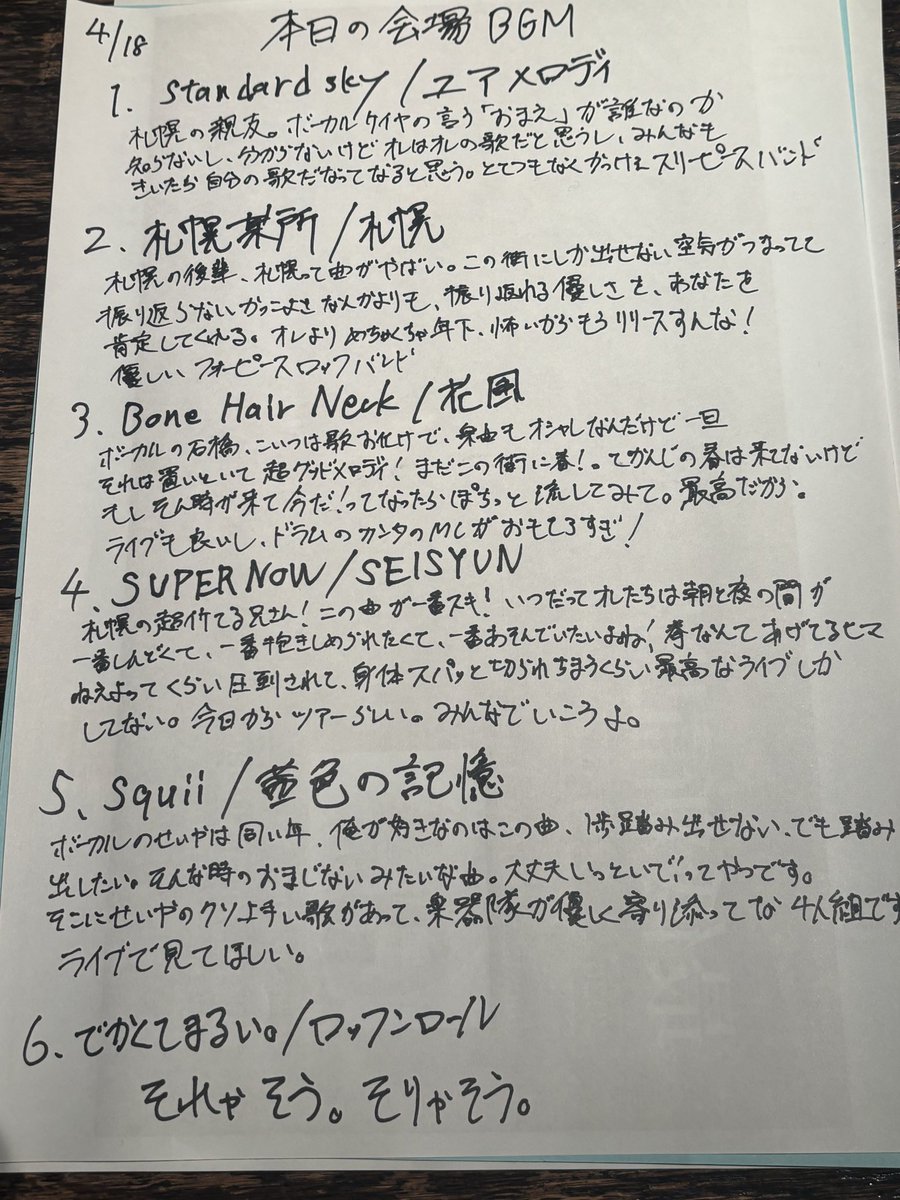 4/18 本日の会場BGM
1. Standard sky/ユアメロディ
札幌の親友。ボーカルケイヤの言う「おまえ」が誰なのか
知らないし、分からないけどオレはオレの歌だと思うし、みんなも
きいたら自分の歌だなってなると思う。とてつもなくかっけえスリーピースバンド
2. 札幌某所/札幌
札幌の後輩、札幌って曲がやばい。この街にしか出せない空気がつまってて
振り返らないかっこよさなんかよりも、振り返れる優しさを、あなたを
肯定してくれる。オレよりめちゃくちゃ年下、怖いからもうリリースすんな!
優しいフォーピースロックバンド
3. Bone Hair Neck/花風
ボーカルの石橋、こいつは歌お化けで、楽曲もオシャレなんだけど一旦
それは置いといて超グッドメロディ!まだこの街に春!。てかんじの春は来てないけど
もしそん時が来て今だ!ってなったらぽちっと流してみて。最高だから。
ライブも良いし、ドラムのカンタのMCがおもしろすぎ!
4. SUPER NOW/SEISYUN
札幌の超イケてる兄さん!この曲が一番スキ!いつだってオレたちは朝と夜の間が
一番しんどくて、一番抱きしめられたくて、一番あそんでいたいよね!拳なんてあげてるヒマ
ねえよってくらい圧倒されて、身体スパッと切られちまうくらい最高なライブしか
してない。今日からツアーらしい。みんなでいこうよ。
5. Squii/藍色の記憶
ボーカルのせいやは同い年、俺が好きなのはこの曲、1歩踏み出せない、でも踏み
出したい。そんな時のおまじないみたいな曲。大丈夫いっといで!ってやつです。
そこにせいやのクソ上手い歌があって、楽器隊が優しく寄り添ってな4人組です
ライブで見てほしい。
6. でかくてまるい。/ロックンロール
それゃそう。そりゃそう。